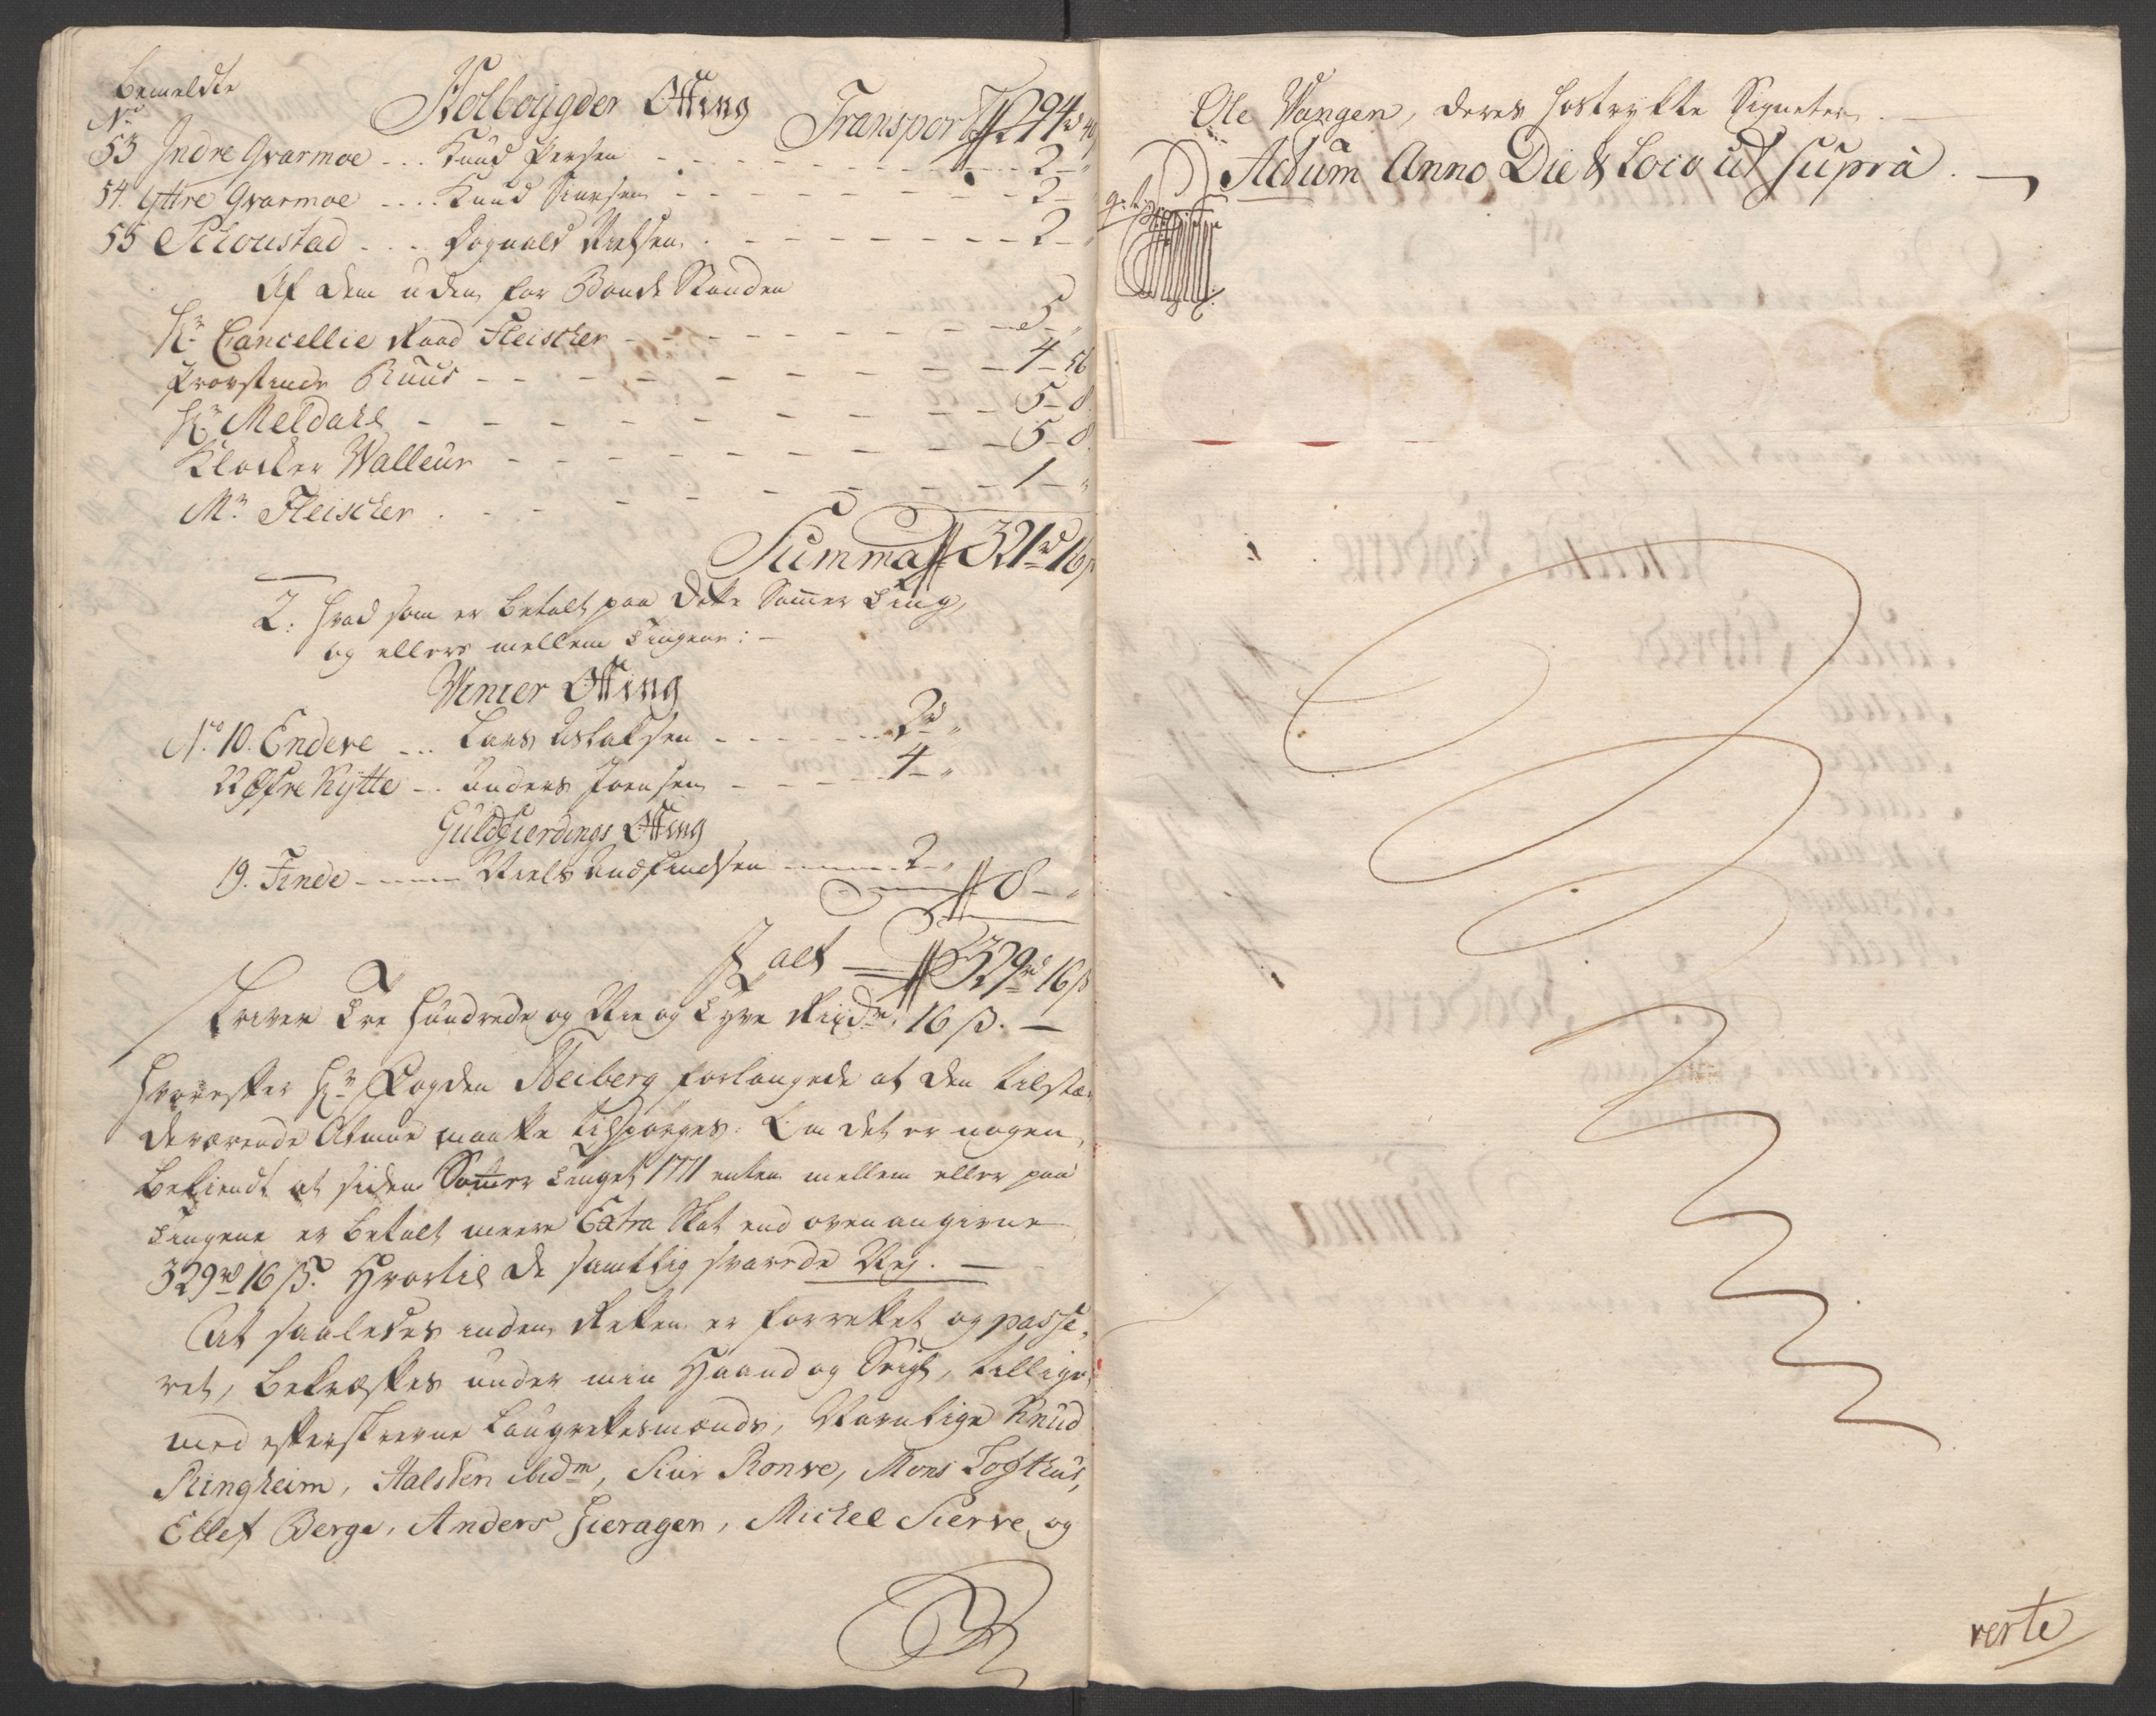 bemeldte
Holbøygder Otting Transport 294rd 40
No
53 Indre Gvarmoe - - . Knud Persen - - - - 2 - "
54. Yttre Gvarmoe - - . Knud Siursen - - - - 2 - "
55 Schoustad - - . Rognald Nielsen - - - - 2 - "
Af dem uden for Bonde Standen
Hr. Cancellie Raad Fleischer - - - - 5 - "
Provstinde Ruus - - - - 4 - 56
Hr. Meldahl - - - - 5 - 8
Klocker Walleur - - - - 5 - 8
Mr. Fleischer - - - - 1 - "
Summa 321rd 16ß
2. Hvad som er betalt paa dette Sommer Ting,
og ellers mellem Tingene: -
Vinier Otting
No. 10. Endeve - - . Lars Aslaksen - - - - 2rd "
22 Øfre Kytte - - . Anders Joensen - - - - 4 - "
Guldfierdings Otting
19. Finde - - - - Niels Andfindsen - - - - 2 - "
8 - "
I alt - 329rd 16ß
skriver Tre Hundrede og Nie og Tyve Rixdr. 16 ß. -
Hvorefter Hr. Fogden Heiberg forlangede at den tilstæ-
deværende Almue maatte tilspørges: Om det er nogen
bekiendt at siden Sommer Tinget 1771 enten mellem eller paa
Tingene er betalt meere Extra Skat end ovenangivne
329rd 16 ß. Hvortil de samtlig svarede Nej. -
At saaledes inden Retten er forrettet og passe-
ret, bekræftes under min Haand og Seigl, tillige
med efterskrevne Laugrettesmænds, Navnlige Knud
Ringheim, Halsten ibidm, Siur Ronve, Mons Lofthus,
Ellef Berge, Anders Hieragen, Michel Sierve og
Ole Vangen, deres hostrykte Signeter. -
Actum Anno Die & Loco ut supra. -
verte